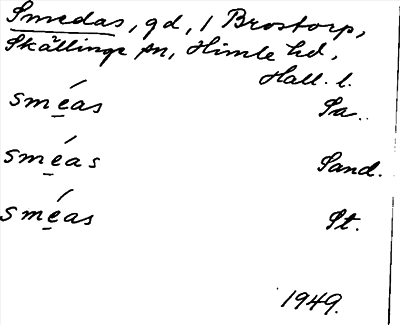 Smedas, gd, 1 Brostorp,
Skällinge sn, Himle hd,
Hall. l.
smé̱as Sa..
smé̱as Sand.
smé̱as St.
1949.